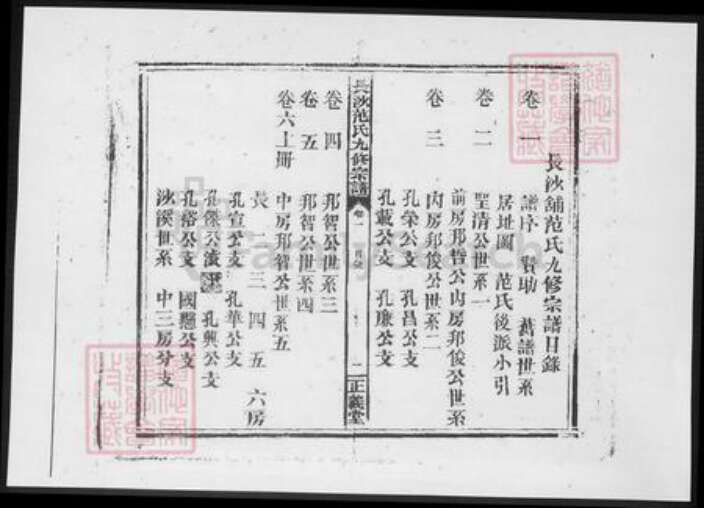 長沙舖范氏九修宗譜目錄
卷一 譜序 贊助 舊譜世系
居址圖 范氏後派小引
卷二 聖清公世系一
前房邦哲公內房邦俊公世系
卷三 內房邦俊公世系二
孔榮公支 孔昌公支
孔戴公支 孔廉公支
長沙范氏九修宗譜 卷一 目錄 一 正義堂
卷四 邦智公世系三
卷五 邦智公世系四
卷六上冊 中房邦智公世系五
長 二 三 四 五 六房
孔宣公支 孔華公支
孔傑公 孔興公支
孔蓉公支 國懸公支
沙溪世系 中三房分支